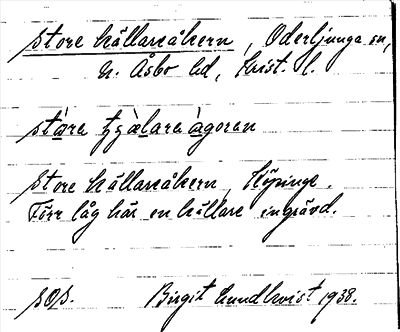 store källareåkern, Oderljunga sn,
N. Åsbo hd, Krist. l.
stòre tȷæ̀lare àgoren
store källareåkern, Köpinge.
Förr låg här en källare ingrävd.
sos. Birgit Lundkvist 1938.